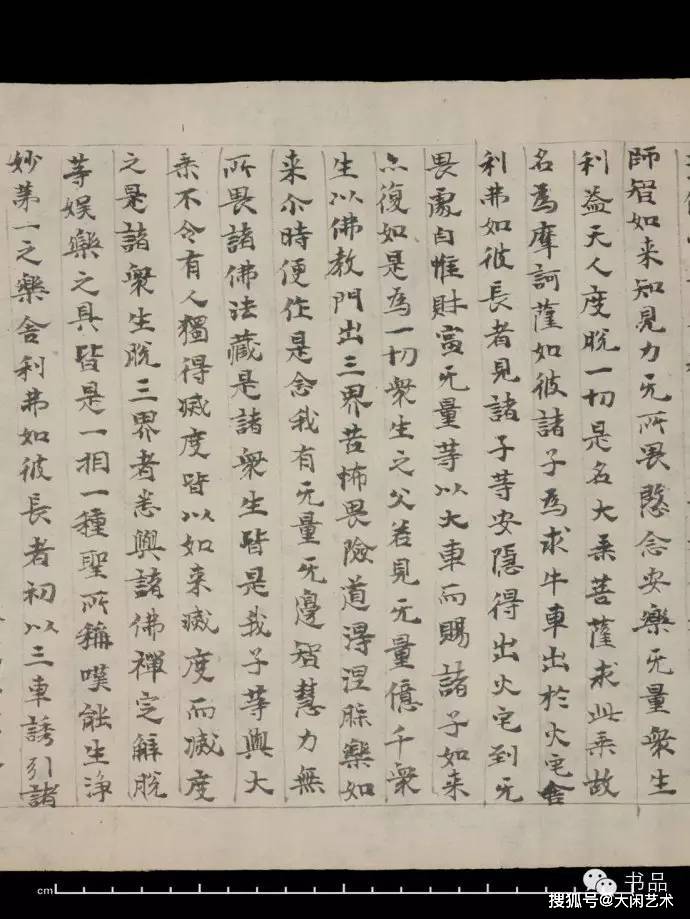 師智如来知見力无所畏愍念安樂无量衆生
利益天人度脱一切是名大乘菩薩求此乘故
名為摩訶薩如彼諸子為求牛車出於火宅舍
利弗如彼長者見諸子等安隱得出火宅到无
畏處自惟財富无量等以大車而賜諸子如来
亦復如是為一切衆生之父若見无量億千衆
生以佛教門出三界苦怖畏險道得涅槃樂如
来尒時便作是念我有无量无邊智慧力無
所畏諸佛法藏是諸衆生皆是我子等與大
乘不令有人獨得滅度皆以如来滅度而滅度
之是諸衆生脱三界者悉與諸佛禪定解脱
等娱樂之具皆是一相一種聖所稱嘆能生淨
妙第一之樂舍利弗如彼長者初以三車誘引諸
cm
书品
搜狐号@大闲艺术